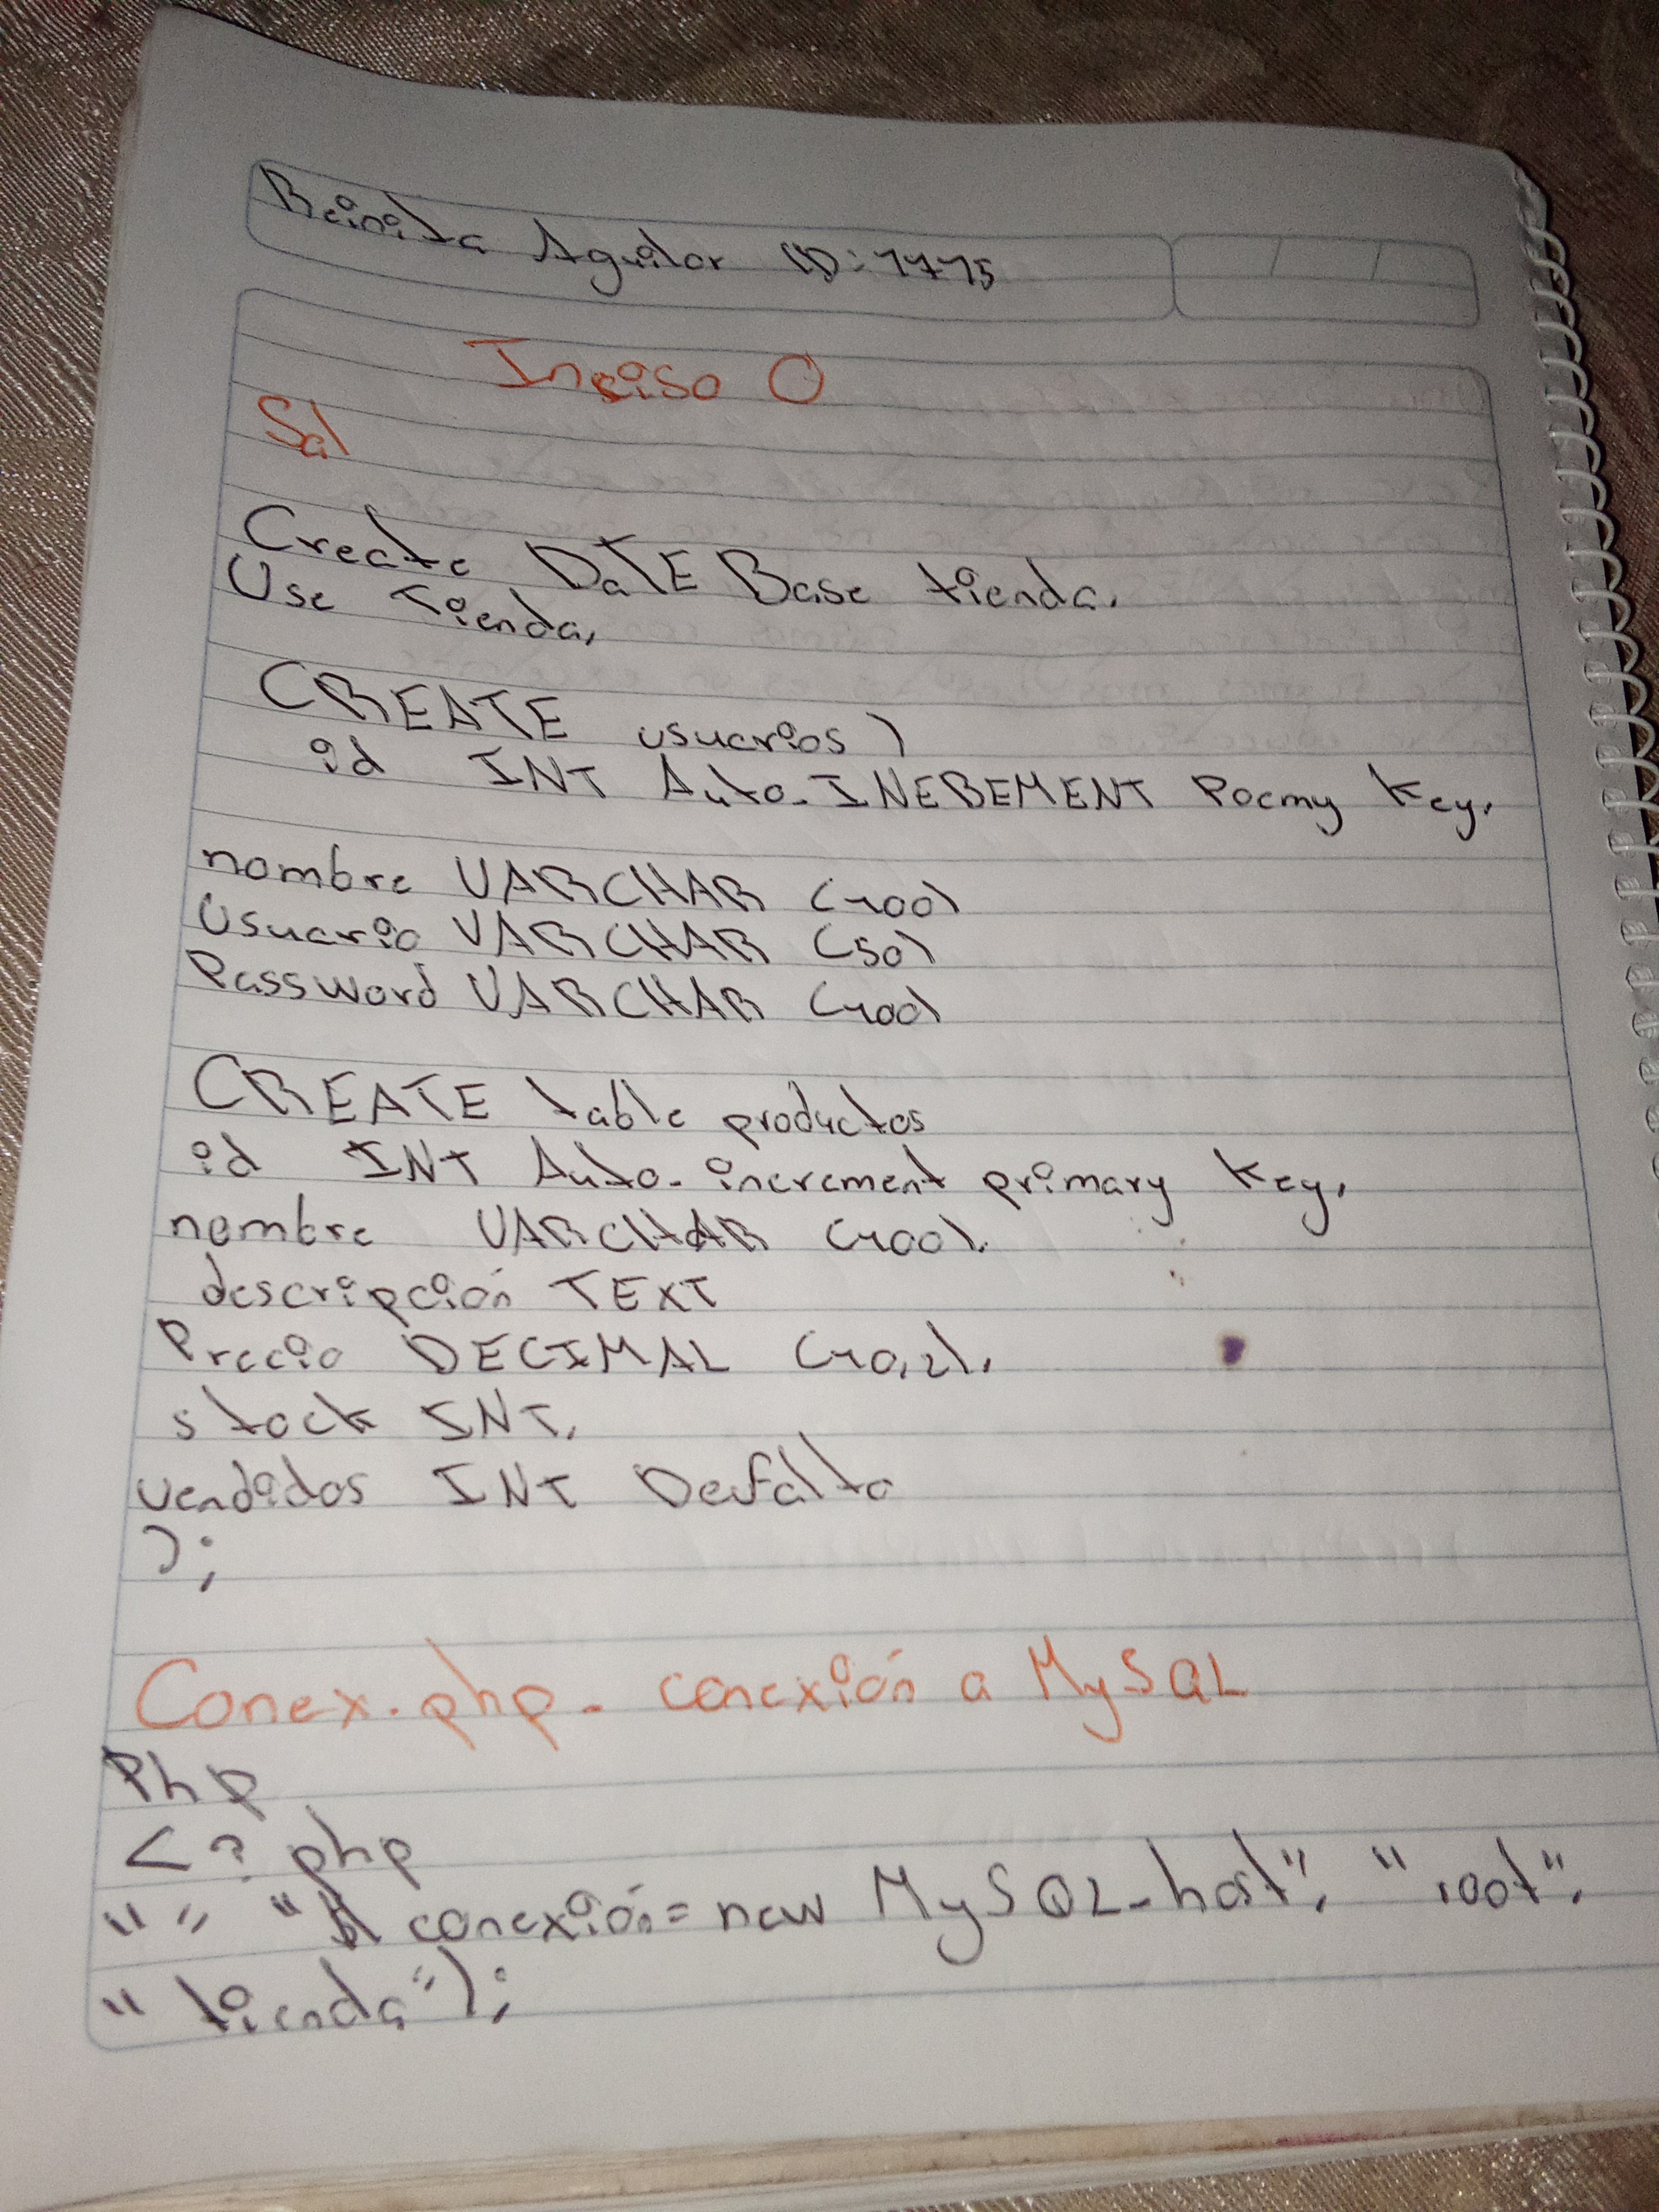 Reinita Aguilar ID: 1775
Inciso O
Sql
Create DaTE Base tienda.
Use Tienda,
CREATE usuarios )
id INT Auto-INEREMENT Pocmy Key,
nombre VARCHAR (100)
Usuario VARCHAR (50)
Password VARCHAR (100)
CREATE table productos
id INT Auto-increment primary Key,
nombre VARCHAR (100).
descripción TEXT
Precio DECIMAL (10,2),
stock INT,
vendidos INT Defalto
);
Conex.php - conexión a MySQL
Php
<? php
" " " $ conexión = new MySQL-host", "root",
" tienda");